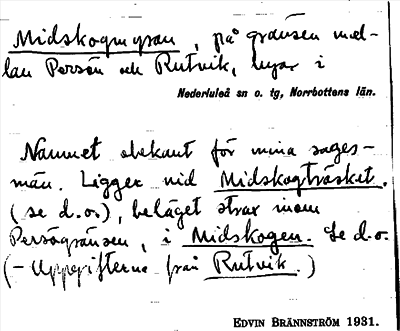 Midskogmyran, på gränsen mel-
lan Persön och Rutvik, myr i
Nederluleå sn o. tg, Norrbottens län.
Namnet obekant för mina sages-
män. Ligger vid Midskogträsket.
(se d.o.), beläget strax inom
Persögränsen, i Midskogen. Se d.o.
(- Uppgifterna från Rutvik.)
EDVIN BRÄNNSTRÖM 1931.